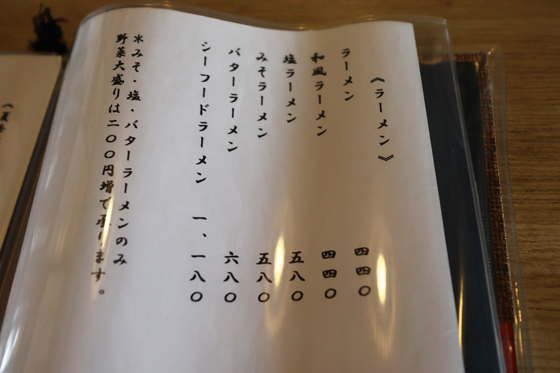 《ラーメン》
ラーメン 四四〇
和風ラーメン 四四〇
塩ラーメン 五八〇
みそラーメン 五八〇
バターラーメン 六八〇
シーフードラーメン 一、一八〇
※みそ・塩・バターラーメンのみ
野菜大盛りは二〇〇円増で承ります。